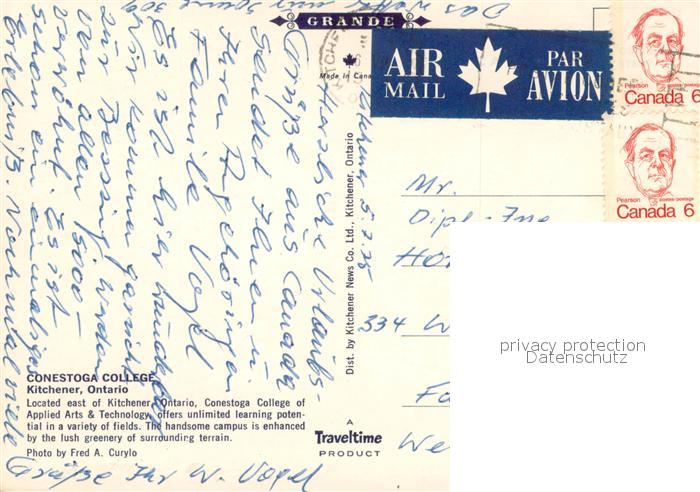 GRANDE
Made in Canada
AIR MAIL
PAR AVION
Pearson postes-postage
Canada 6
Pearson postes-postage
Canada 6
Kitchener 5.7.75
Herzliche Urlaubs-
Grüße aus Canada
sendet Ihnen u.
Ihren Angehörigen
Familie Vogel
Es ist hier wunderbar
Wir kommen garnicht
zur Besinnung. Werden
von allen Seiten
verwöhnt. Es ist
schon ein einmaliges
Erlebnis. Nochmal viele
Grüße Ihr W. Vogel
Das Wetter
Mr.
Dipl.-Ing.
334 W
We
Dist. by Kitchener News Co. Ltd., Kitchener, Ontario
CONESTOGA COLLEGE
Kitchener, Ontario
Located east of Kitchener, Ontario, Conestoga College of
Applied Arts & Technology, offers unlimited learning poten-
tial in a variety of fields. The handsome campus is enhanced
by the lush greenery of surrounding terrain.
Photo by Fred A. Curylo
A
Traveltime
PRODUCT
privacy protection
Datenschutz